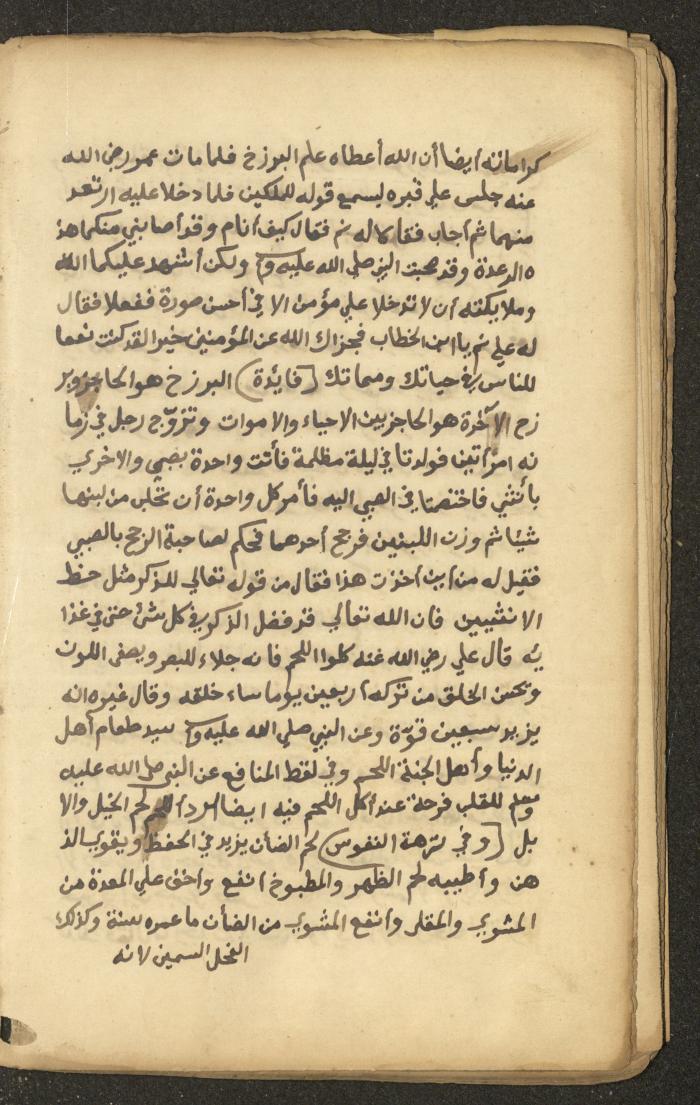 كراماته أيضا أن الله أعطاه علم البرزخ فلما مات عمر رضي الله
عنه جلس علي قبره ليسمع قوله للملكين فلما دخلا عليه ارتعد
منهما ثم أجاب فقالا له نم فقال كيف أنام وقد أصابني منكما هذ
ه الرعدة وقد صحبت النبي صلي الله عليه وسلم ولكن أشهد عليكما الله
وملايكته أن لا تدخلا علي مؤمن الا في أحسن صورة ففعلا فقال
له علي نم يا ابن الخطاب فجزاك الله عن المؤمنين خيرا لقد كنت نفعا
للناس في حياتك ومماتك (فايدة) البرزخ هو الحاجز وبر
زح الآخرة هو الحاجز بين الاحياء والاموات وتزوّج رجل في زما
نه امرأتين فولدتا في ليلة مظلمة فأتت واحدة بصبي والاخري
بأنثي فاختصمتا في الصبي اليه فأمر كل واحدة أن تحلب من لبنها
شيئا ثم وزن اللبنين فرجح أحدهما فحكم لصاحبة الرجح بالصبي
فقيل له من أين أخذت هذا فقال من قوله تعالي للذكر مثل حظ
الانثيين فان الله تعالي قد فضل الذكر في كل شئ حتي في غذا
يه قال علي رضي الله عنه كلوا اللحم فانه جلاء للبصر ويصفي اللون
ويحسن الخلق من تركه أربعين يوما ساء خلقه وقال غيره انه
يزيد سبعين قوّة وعن النبي صلي الله عليه وسلم سيد طعام أهل
الدنيا وأهل الجنة اللحم وفي لقط المنافع عن النبي صلي الله عليه
وسلم للقلب فرحة عند أكل اللحم فيه ايضا لحم الخيل والا
بل (وفي نزهة النفوس) لحم الضأن يزيد في الحفظ ويقوي الذ
هن وأطيبه لحم الظهر والمطبوخ أنفع وأخف علي المعدة من
المشوي والمقلي وأنفع المشوي من الضأن ما عمره سنة وكذلك
الفحل السمين لانه